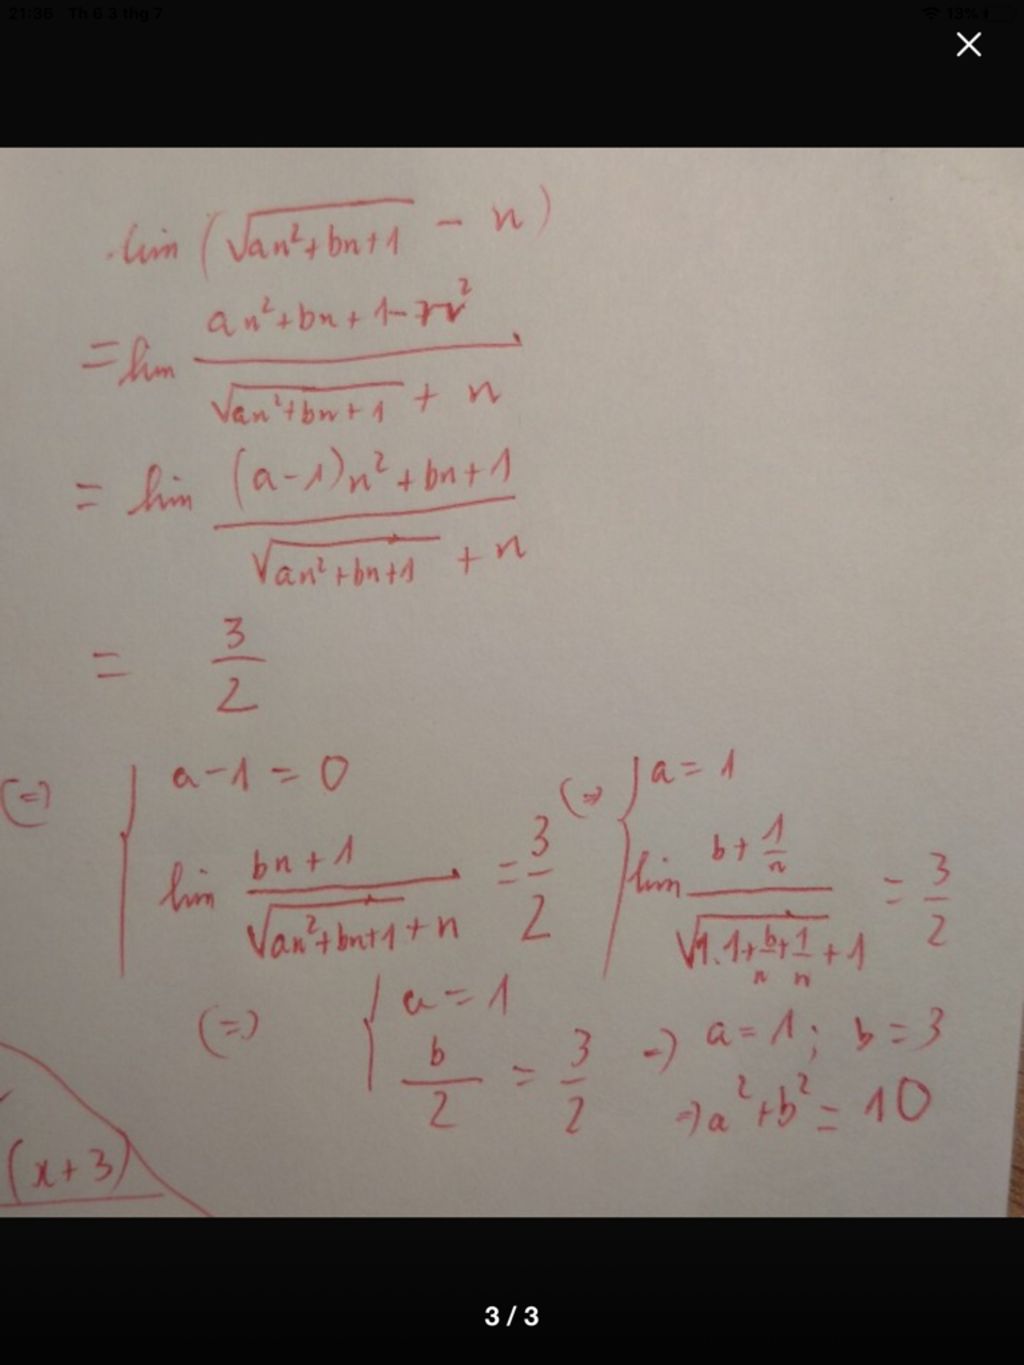 21:36 Th 6 3 thg 7 13%
lim (√(an²+bn+1) - n)
= lim (an²+bn+1-n²)/(√(an²+bn+1) + n)
= lim ((a-1)n²+bn+1)/(√(an²+bn+1) + n)
= 3/2
(=) { a-1=0 (=) { a=1
lim (bn+1)/(√(an²+bn+1)+n) = 3/2 lim (b+1/n)/(√(1.1+b/n+1/n)+1) = 3/2
(=) { a=1
b/2 = 3/2 => a=1; b=3
=> a²+b²=10
(x+3)
3 / 3